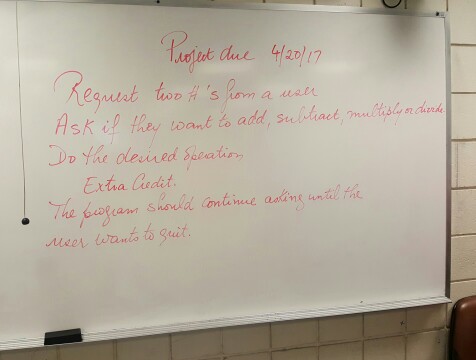 Project due 4/20/17
Request two #'s from a user
Ask if they want to add, subtract, multiply or divide.
Do the desired operation
Extra Credit.
The program should continue asking until the
user wants to quit.